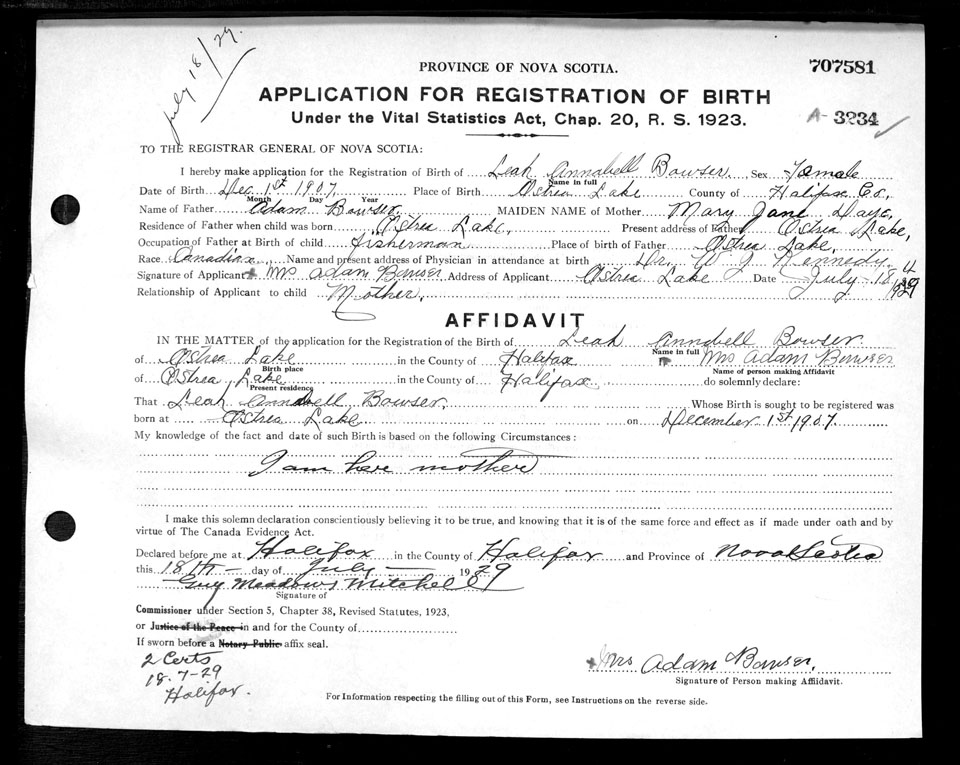 July 18/29.
PROVINCE OF NOVA SCOTIA.
707581
APPLICATION FOR REGISTRATION OF BIRTH
Under the Vital Statistics Act, Chap. 20, R. S. 1923.
A- 3234
TO THE REGISTRAR GENERAL OF NOVA SCOTIA:
I hereby make application for the Registration of Birth of Leah Annabell Bowser. Sex Female
Name in full
Date of Birth Dec 1st 1907. Place of Birth Ostrea Lake County of Halifax Co,
Month Day Year
Name of Father Adam Bowser. MAIDEN NAME of Mother Mary Jane
Residence of Father when child was born Ostrea Lake, Present address of Father Ostrea Lake,
Occupation of Father at Birth of child fisherman Place of birth of Father Ostrea Lake,
Race Name and present address of Physician in attendance at birth Dr. W J Kennedy
Signature of Applicant Mrs Adam Bowser Address of Applicant Ostrea Lake Date July 18 1929
Relationship of Applicant to child Mother.
AFFIDAVIT
IN THE MATTER of the application for the Registration of the Birth of Leah Annabell Bowser
Name in full
of Ostrea Lake in the County of Halifax Mrs Adam Bowser
Birth place Name of person making Affidavit
of Ostrea Lake in the County of Halifax do solemnly declare:
Present residence
That Leah Annabell Bowser. Whose Birth is sought to be registered was
born at Ostrea Lake on December 1st 1907.
My knowledge of the fact and date of such Birth is based on the following Circumstances :
I am here mother
I make this solemn declaration conscientiously believing it to be true, and knowing that it is of the same force and effect as if made under oath and by
virtue of The Canada Evidence Act.
Declared before me at Halifax in the County of Halifax and Province of Nova Scotia
this 18th day of July 1929
Guy Meadows Mitchell
Signature of
Commissioner under Section 5, Chapter 38, Revised Statutes, 1923,
or Justice of the Peace in and for the County of
If sworn before a Notary Public affix seal.
2 Certs
18-7-29
Halifax.
Mrs Adam Bowser.
Signature of Person making Affidavit.
For Information respecting the filling out of this Form, see Instructions on the reverse side.